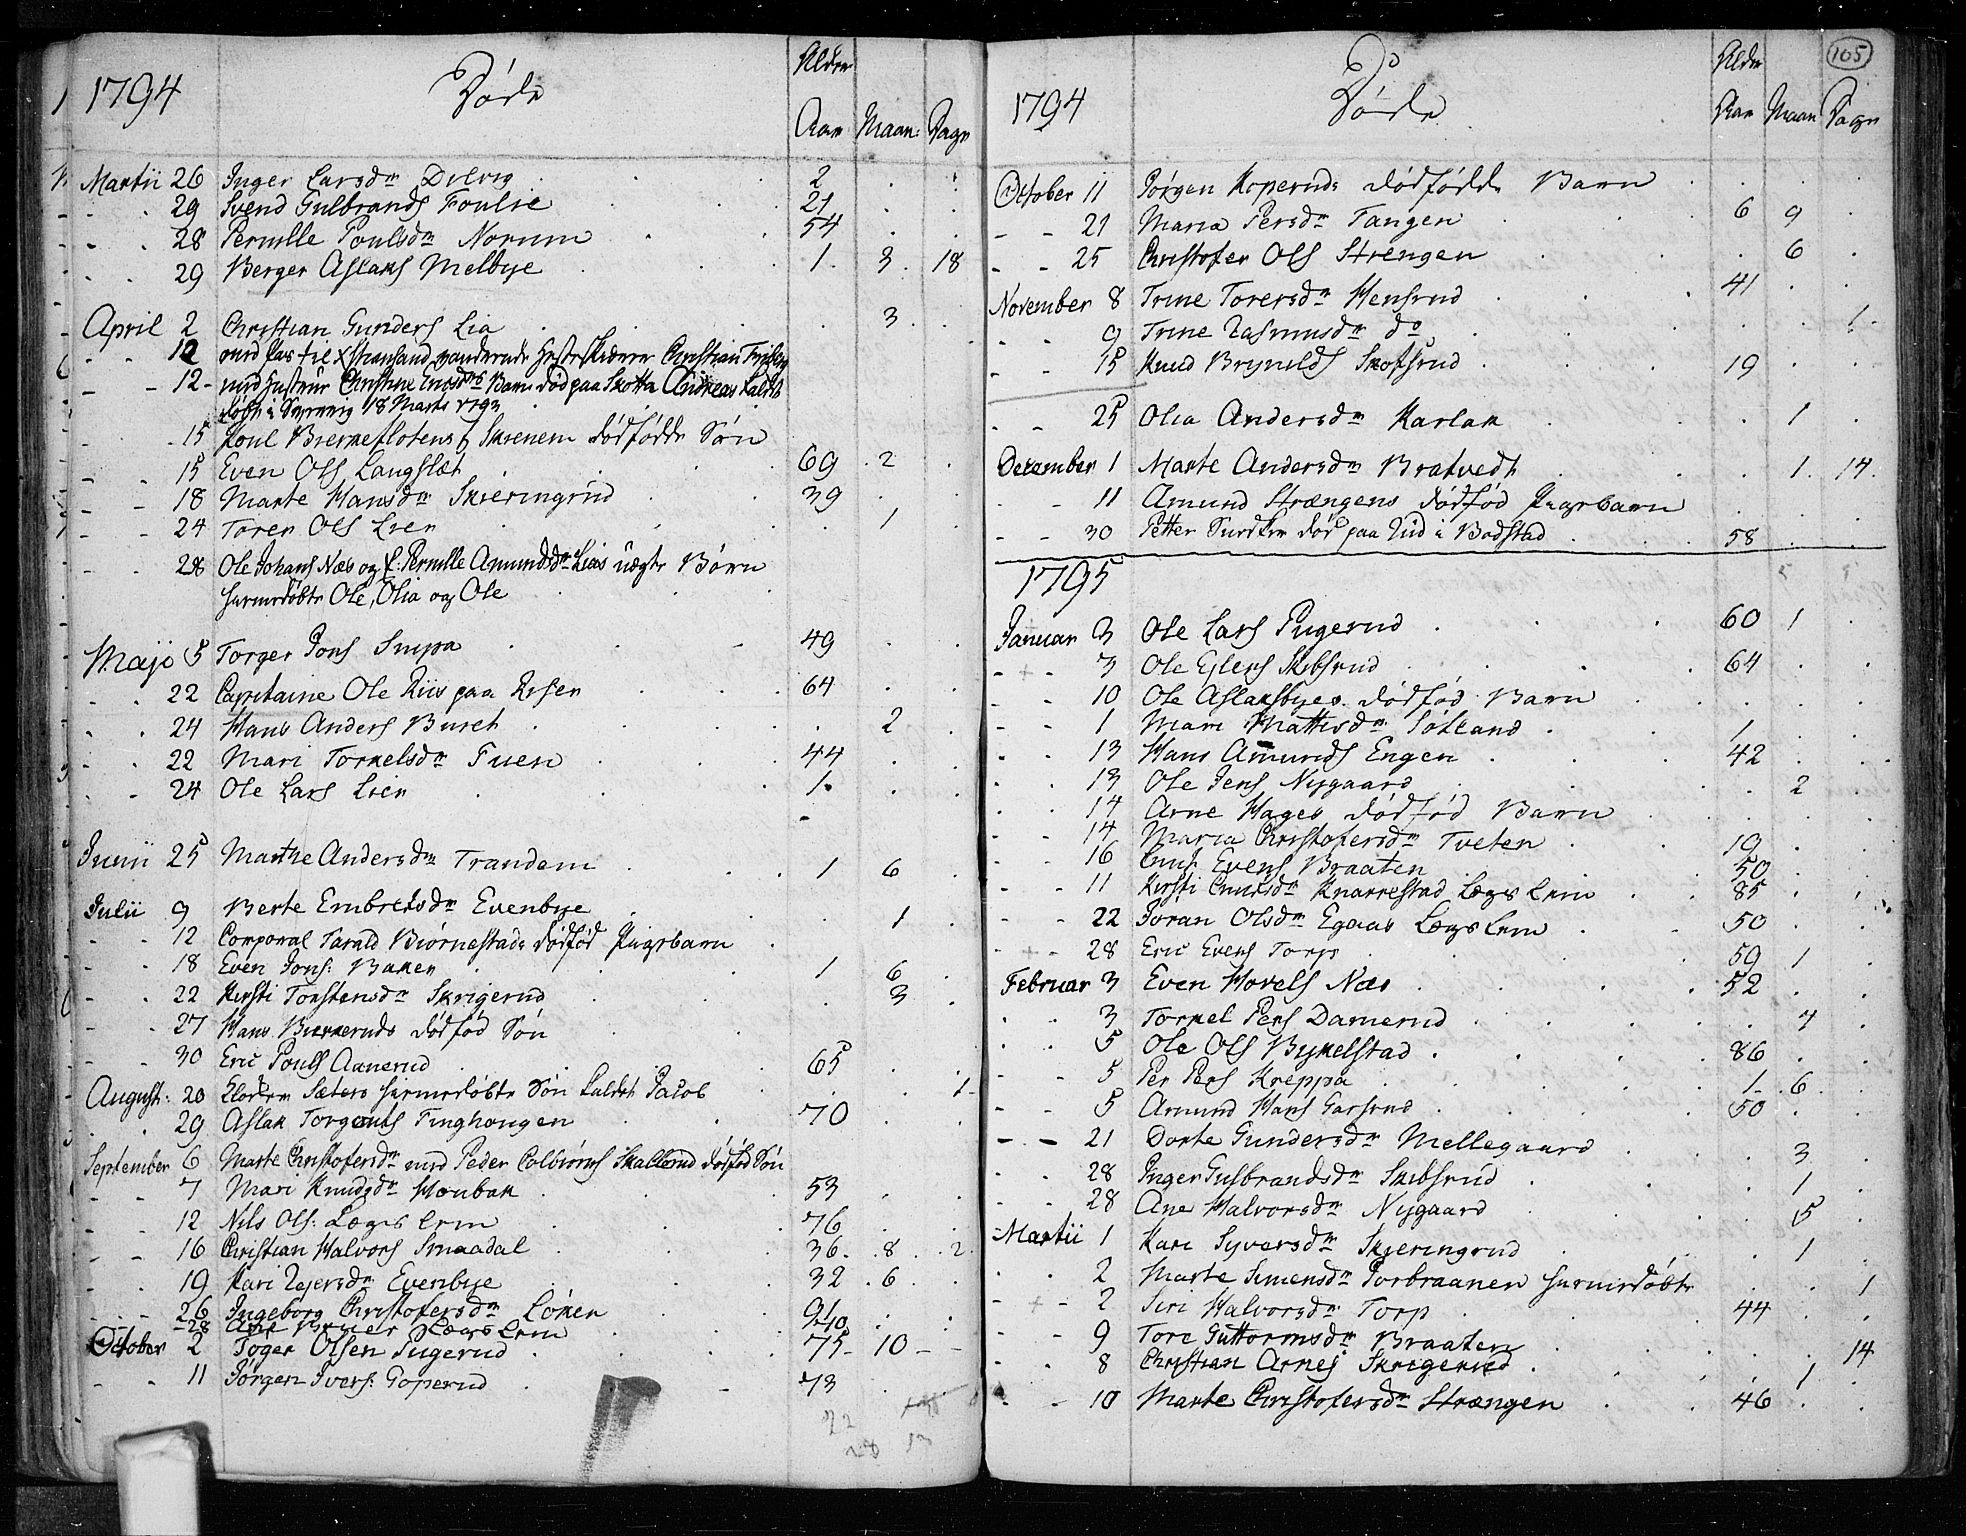 1794 Døde Alder
Aar Maan: Dage
Martii 26 Inger Larsdr 2
29 Svend Gulbrands Foulie 21
28 Pernille Poulsdr Norum 54
29 Berger Aslaks Melbye 1 3 18
April 2 Christian Gunders Lia 3
12 med Pas til Christiansand vandrende Christian
12 med Hustrue Christine Barn død paa Andreas kaldt
døbt i 18 Marts 1793
15 Poul Bierkeflotens dødfødde Søn
15 Even Ols Langslet 69 2
18 Marte Hansdr Skieringrud 39
24 Toren Ols Lien 1
28 Ole Johans Næs og Pernille Amundsdr Lias uægte Børn
hiemedøbte Ole, Olia og Ole
Maji 5 Torger Jons Snipa 49
22 Capitaine Ole Riis paa Risen 64
24 Hans Anders Buret 2
22 Mari Torkelsdr Tuen 44
24 Ole Lars Lien 1
Junii 25 Marthe Andersdr Trandem 1 6
Julii 9 Berte Embretsdr Evenbye 1
12 Corporal Tarald Biørnestads dødfød Pigebarn
18 Even Jons: Baken 1 6
22 Kirsti Torstensdr Skrigerud 3
27 Hans Bierkeruds dødfød Søn
30 Eric Pouls Aanerud 65
August: 20 Sæters hiemedøbte Søn kaldet Jacob 1
29 Aslak Torgeuts Tinghougen 70
September 6 Marte Christofersdr med Peder Colbiørns Skallerud dødfød Søn
7 Mari Knudsdr Houbak 53
12 Nils Ols: Lægs Lem 76
16 Christian Halvors Smaadal 36 8 2
19 Kari Rejersdr Evenbye 32 6
26 Ingeborg Christofersdr Løken
28 Lægs Lem
October 2 Toger Olsen Pugerud 75 10
11 Jørgen Ivers: Goperud 73
22
28 13
105
1794 Døde Alder
Aar Maan Dage
October 11 Jørgen Koperuds dødfødde Barn
21 Maria Persdr Tangen 6 9
25 Christofer Ols Strengen 6
November 8 Trine Torersdr Hensrud 41
9 Trine Rasmusdr do 1
15 Knud Brynilds Skofsrud 19
25 Olia Andersdr Karlak 1
December 1 Marte Andersdr Bratvedt 1 14
11 Amund Strængens dødfød Pigebarn
30 Petter død paa i Bodstad 58
1795
Januar 3 Ole Lars Pugerud 60 1
3 Ole Eylers Skibsrud 64
10 Ole Aslaksbyes dødfød Barn
1 Mari Mattisdr Søtland 1
13 Hans Amunds Engen 42
13 Ole Jens Nygaard 2
14 Arne Hages dødfød Barn
14 Maria Christofersdr Tveten 19
16 Evens Braaten 50
11 Kirsti Cnudsdr Knarrestad Lægs Lem 85
22 Joran Olsdr Egaas Lægs Lem 50
28 Eric Evens Torp 59 1
Februar 3 Even Hovels Næs 52
3 Torkel Pers Damerud 4
5 Ole Ols Bykelstad 86
5 Per Pers Kreppa 1 6
5 Amund Hans Garsrud 50
21 Dorte Gundersdr Mellegaard 3
28 Inger Gulbrandsdr Skibsrud 1
28 Ane Halvorsdr Nygaard 5
Martii 1 Kari Syversdr Skieringrud 1
2 Marte Simensdr Porbraanen hiemedøbte 1
2 Siri Halvorsdr Torp 44
9 Tore Guttormsdr Braaten 14
8 Christian Arnes Skrigerud 1
10 Marte Christofersdr Strængen 46